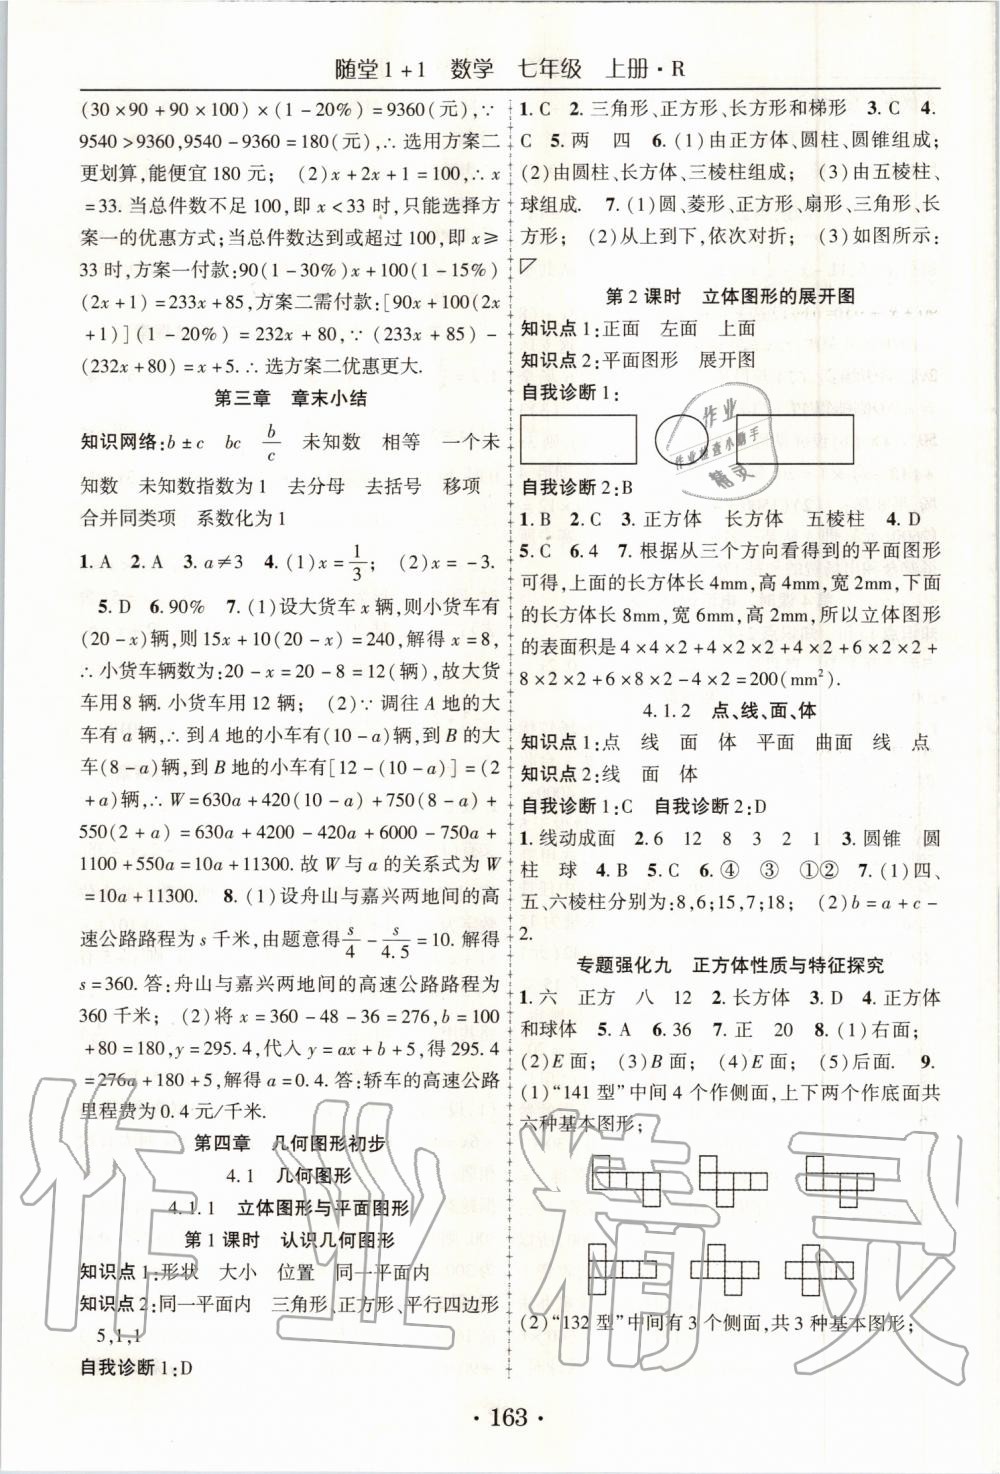 随堂1+1 数学 七年级 上册·R
(30×90+90×100)×(1-20%)=9360(元),∵
9540>9360,9540-9360=180(元),∴选用方案二
更划算,能便宜180元; (2)x+2x+1=100,∴x
=33.当总件数不足100,即x<33时,只能选择方
案一的优惠方式;当总件数达到或超过100,即x≥
33时,方案一付款:90(1-30%)x+100(1-15%)
(2x+1)=233x+85,方案二需付款:[90x+100(2x
+1)](1-20%)=232x+80,∵(233x+85)-
(232x+80)=x+5.∴选方案二优惠更大.
第三章 章末小结
知识网络:b±c bc b/c 未知数 相等 一个未
知数 未知数指数为1 去分母 去括号 移项
合并同类项 系数化为1
1.A 2.A 3.a≠3 4.(1)x=1/3; (2)x=-3.
5.D 6.90% 7.(1)设大货车x辆,则小货车有
(20-x)辆,则15x+10(20-x)=240,解得x=8,
∴小货车辆数为:20-x=20-8=12(辆),故大货
车用8辆.小货车用12辆; (2)∵调往A地的大
车有a辆,∴到A地的小车有(10-a)辆,到B的大
车(8-a)辆,到B地的小车有[12-(10-a)]=(2
+a)辆,∴W=630a+420(10-a)+750(8-a)+
550(2+a)=630a+4200-420a+6000-750a+
1100+550a=10a+11300.故W与a的关系式为W
=10a+11300. 8.(1)设舟山与嘉兴两地间的高
速公路路程为s千米,由题意得s/4-s/4.5=10.解得
s=360.答:舟山与嘉兴两地间的高速公路路程为
360千米; (2)将x=360-48-36=276,b=100
+80=180,y=295.4,代入y=ax+b+5,得295.4
=276a+180+5,解得a=0.4.答:轿车的高速公路
里程费为0.4元/千米.
第四章 几何图形初步
4.1 几何图形
4.1.1 立体图形与平面图形
第1课时 认识几何图形
知识点1:形状 大小 位置 同一平面内
知识点2:同一平面内 三角形、正方形、平行四边形
5,1,1
自我诊断1:D
1.C 2.三角形、正方形、长方形和梯形 3.C 4.
C 5.两 四 6.(1)由正方体、圆柱、圆锥组成;
(2)由圆柱、长方体、三棱柱组成; (3)由五棱柱、
球组成. 7.(1)圆、菱形、正方形、扇形、三角形、长
方形; (2)从上到下,依次对折; (3)如图所示:
第2课时 立体图形的展开图
知识点1:正面 左面 上面
知识点2:平面图形 展开图
自我诊断1:
作业
作业检查小助手
精灵
自我诊断2:B
1.B 2.C 3.正方体 长方体 五棱柱 4.D
5.C 6.4 7.根据从三个方向看得到的平面图形
可得,上面的长方体长4mm,高4mm,宽2mm,下面
的长方体长8mm,宽6mm,高2mm,所以立体图形
的表面积是4×4×2+4×2×2+4×2+6×2×2+
8×2×2+6×8×2-4×2=200(mm²).
4.1.2 点、线、面、体
知识点1:点 线 面 体 平面 曲面 线 点
知识点2:线 面 体
自我诊断1:C 自我诊断2:D
1.线动成面 2.6 12 8 3 2 1 3.圆锥 圆
柱 球 4.B 5.C 6.④ ③ ①② 7.(1)四、
五、六棱柱分别为:8,6;15,7;18; (2)b=a+c-
2.
专题强化九 正方体性质与特征探究
1.六 正方 八 12 2.长方体 3.D 4.正方体
和球体 5.A 6.36 7.正 20 8.(1)右面;
(2)E面; (3)B面; (4)E面; (5)后面. 9.
(1)“141型”中间4个作侧面,上下两个作底面共
六种基本图形;
(2)“132型”中间有3个侧面,共3种基本图形;
作业精灵
·163·